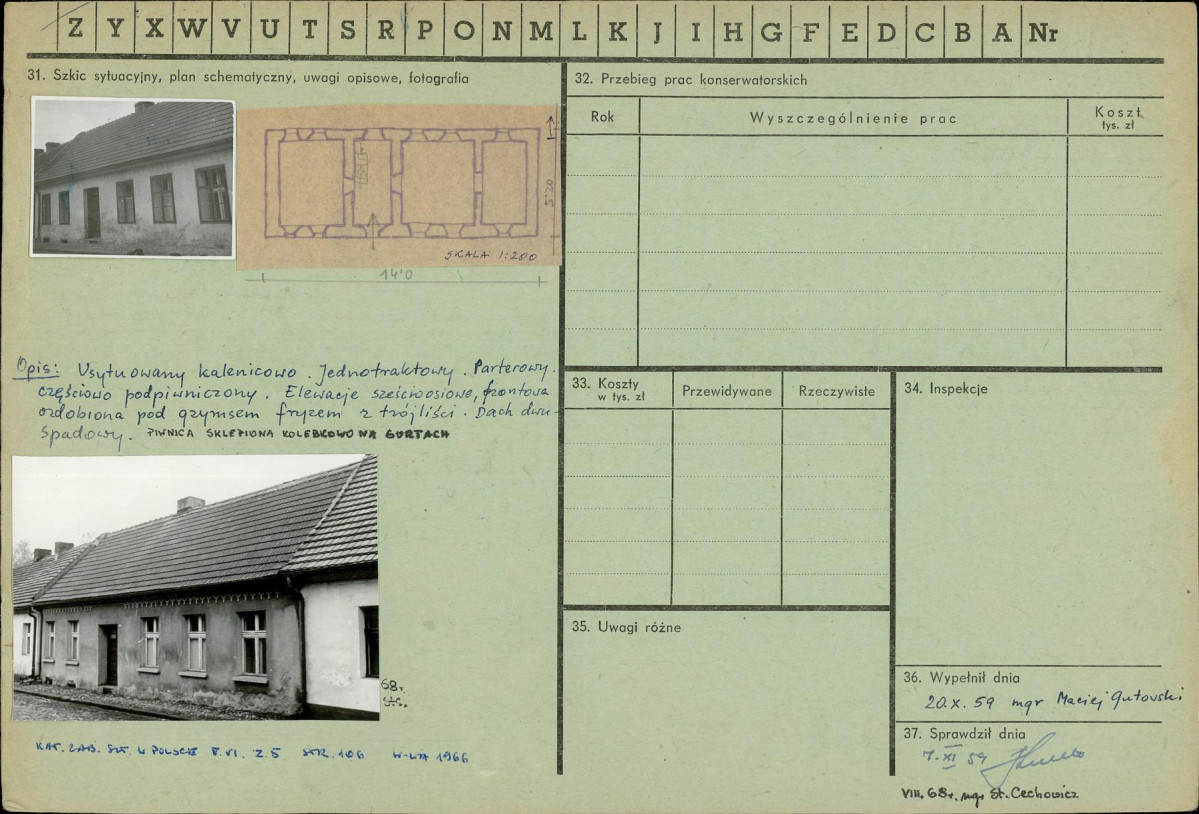 Z Y X W V U T S R P O N M L K J I H G F E D C B A Nr
31. Szkic sytuacyjny, plan schematyczny, uwagi opisowe, fotografia
SKALA 1:200
5'20
14'0
Opis: Usytuowany kalenicowo. Jednotraktowy. Parterowy.
częściowo podpiwniczony. Elewacje sześcioosiowe, frontowa
ozdobiona pod gzymsem fryzem z trójliści. Dach dwu-
spadowy. PIWNICA SKLEPIONA KOLEBKOWO NA GURTACH
68r.
St.C.
KAT. ZAB. SZT. W POLSCE T.VI. Z.5 STR. 106 W-WA 1966
32. Przebieg prac konserwatorskich
Rok
Wyszczególnienie prac
Koszt
tys. zł
33. Koszty
w tys. zł
Przewidywane
Rzeczywiste
34. Inspekcje
35. Uwagi różne
36. Wypełnił dnia
20.X.59 mgr Maciej Gutowski
37. Sprawdził dnia
7.XI 59
VIII.68r. mgr St. Cechowicz